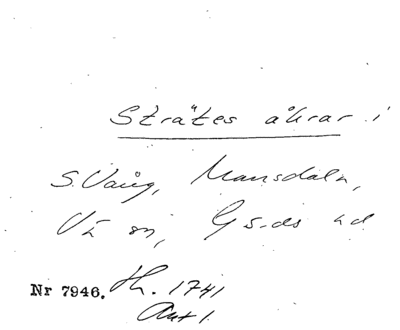 Strätes åkrar i
S. Vång, Mansdala,
Vä sn, Gs. ds hd
Nr 7946. H. 1741
Akt 1.